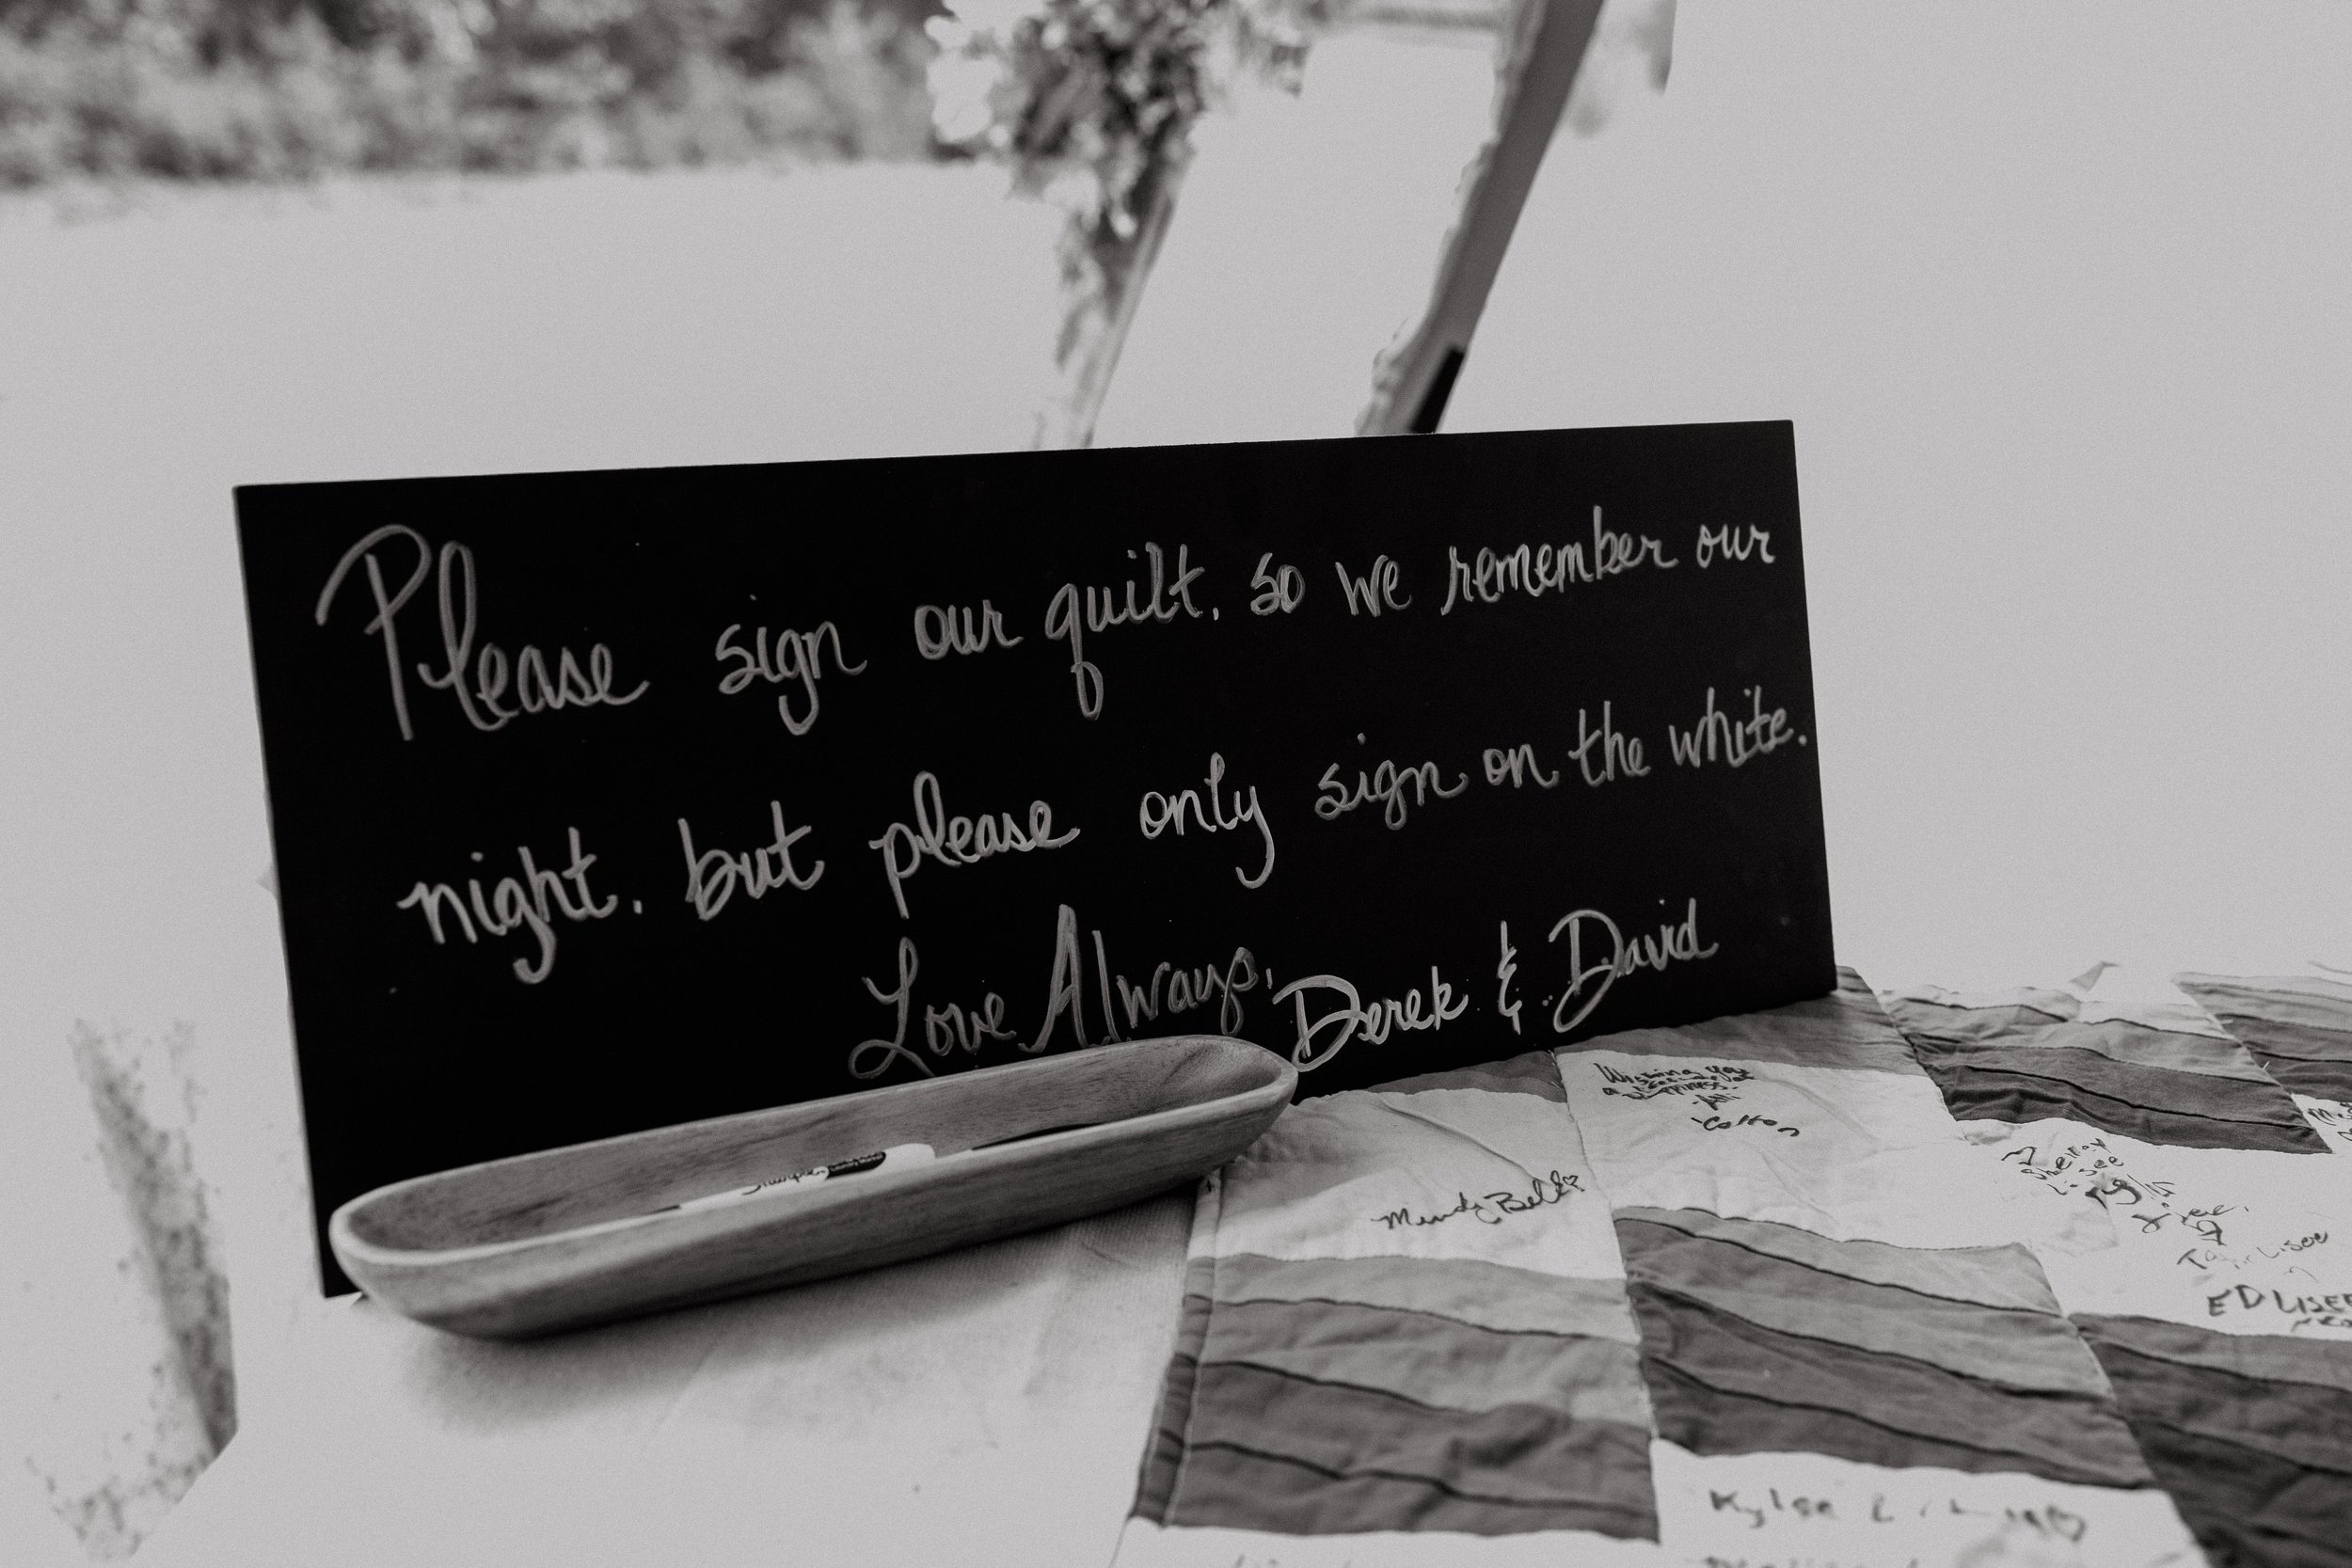 Please sign our quilt, so we remember our
night, but please only sign on the white.
Love Always, Derek & David
Sharpie
Wishing you
a
happiness.
Colton
Mindy Bell
Shelby
see
Taylor Lisee
ED LISEE
Kylee